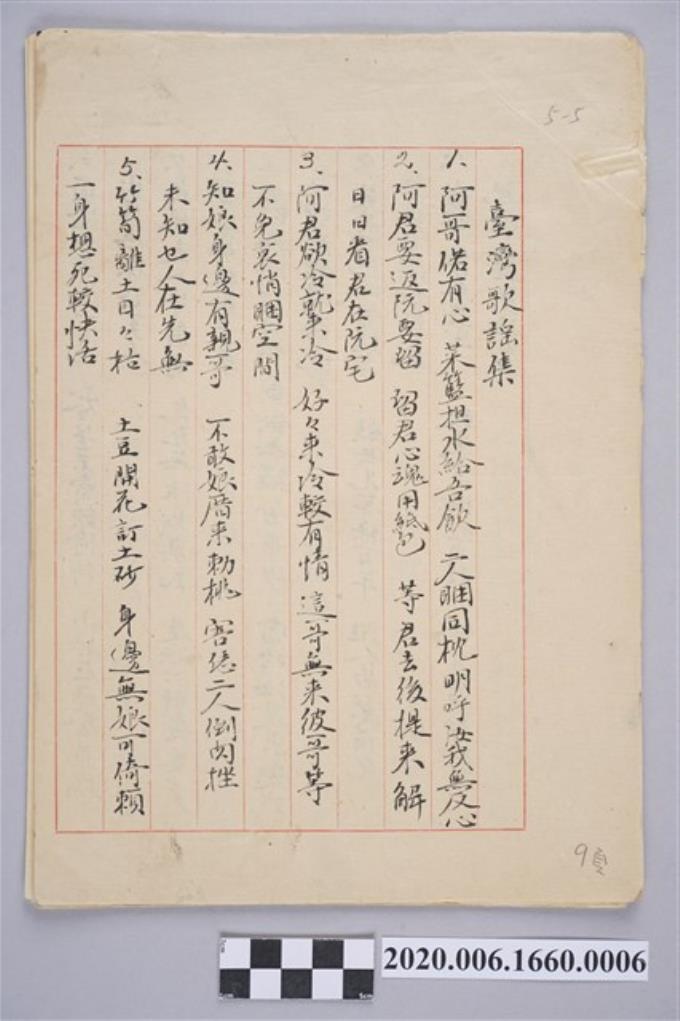 5-5
臺灣歌謠集
1、阿哥偌有心 菜籃担水給吾飲 二人睏同枕明呼汝我無反心
2、阿君要返阮要留 留君心魂用紙包 等君去後提来解
日日看君在阮宅
3、阿君欲冷就来冷 好々来冷較有情 這哥無来彼哥等
不免哀悄睏空間
4、知娘身邊有親哥 不敢娘厝来勅桃 害恁二人倒閃挫
未知乜人在先無
5、竹筍離土日々枯 土豆開花訂土砂 身邊無娘可倚賴
一身想死較快活
9頁
2020.006.1660.0006